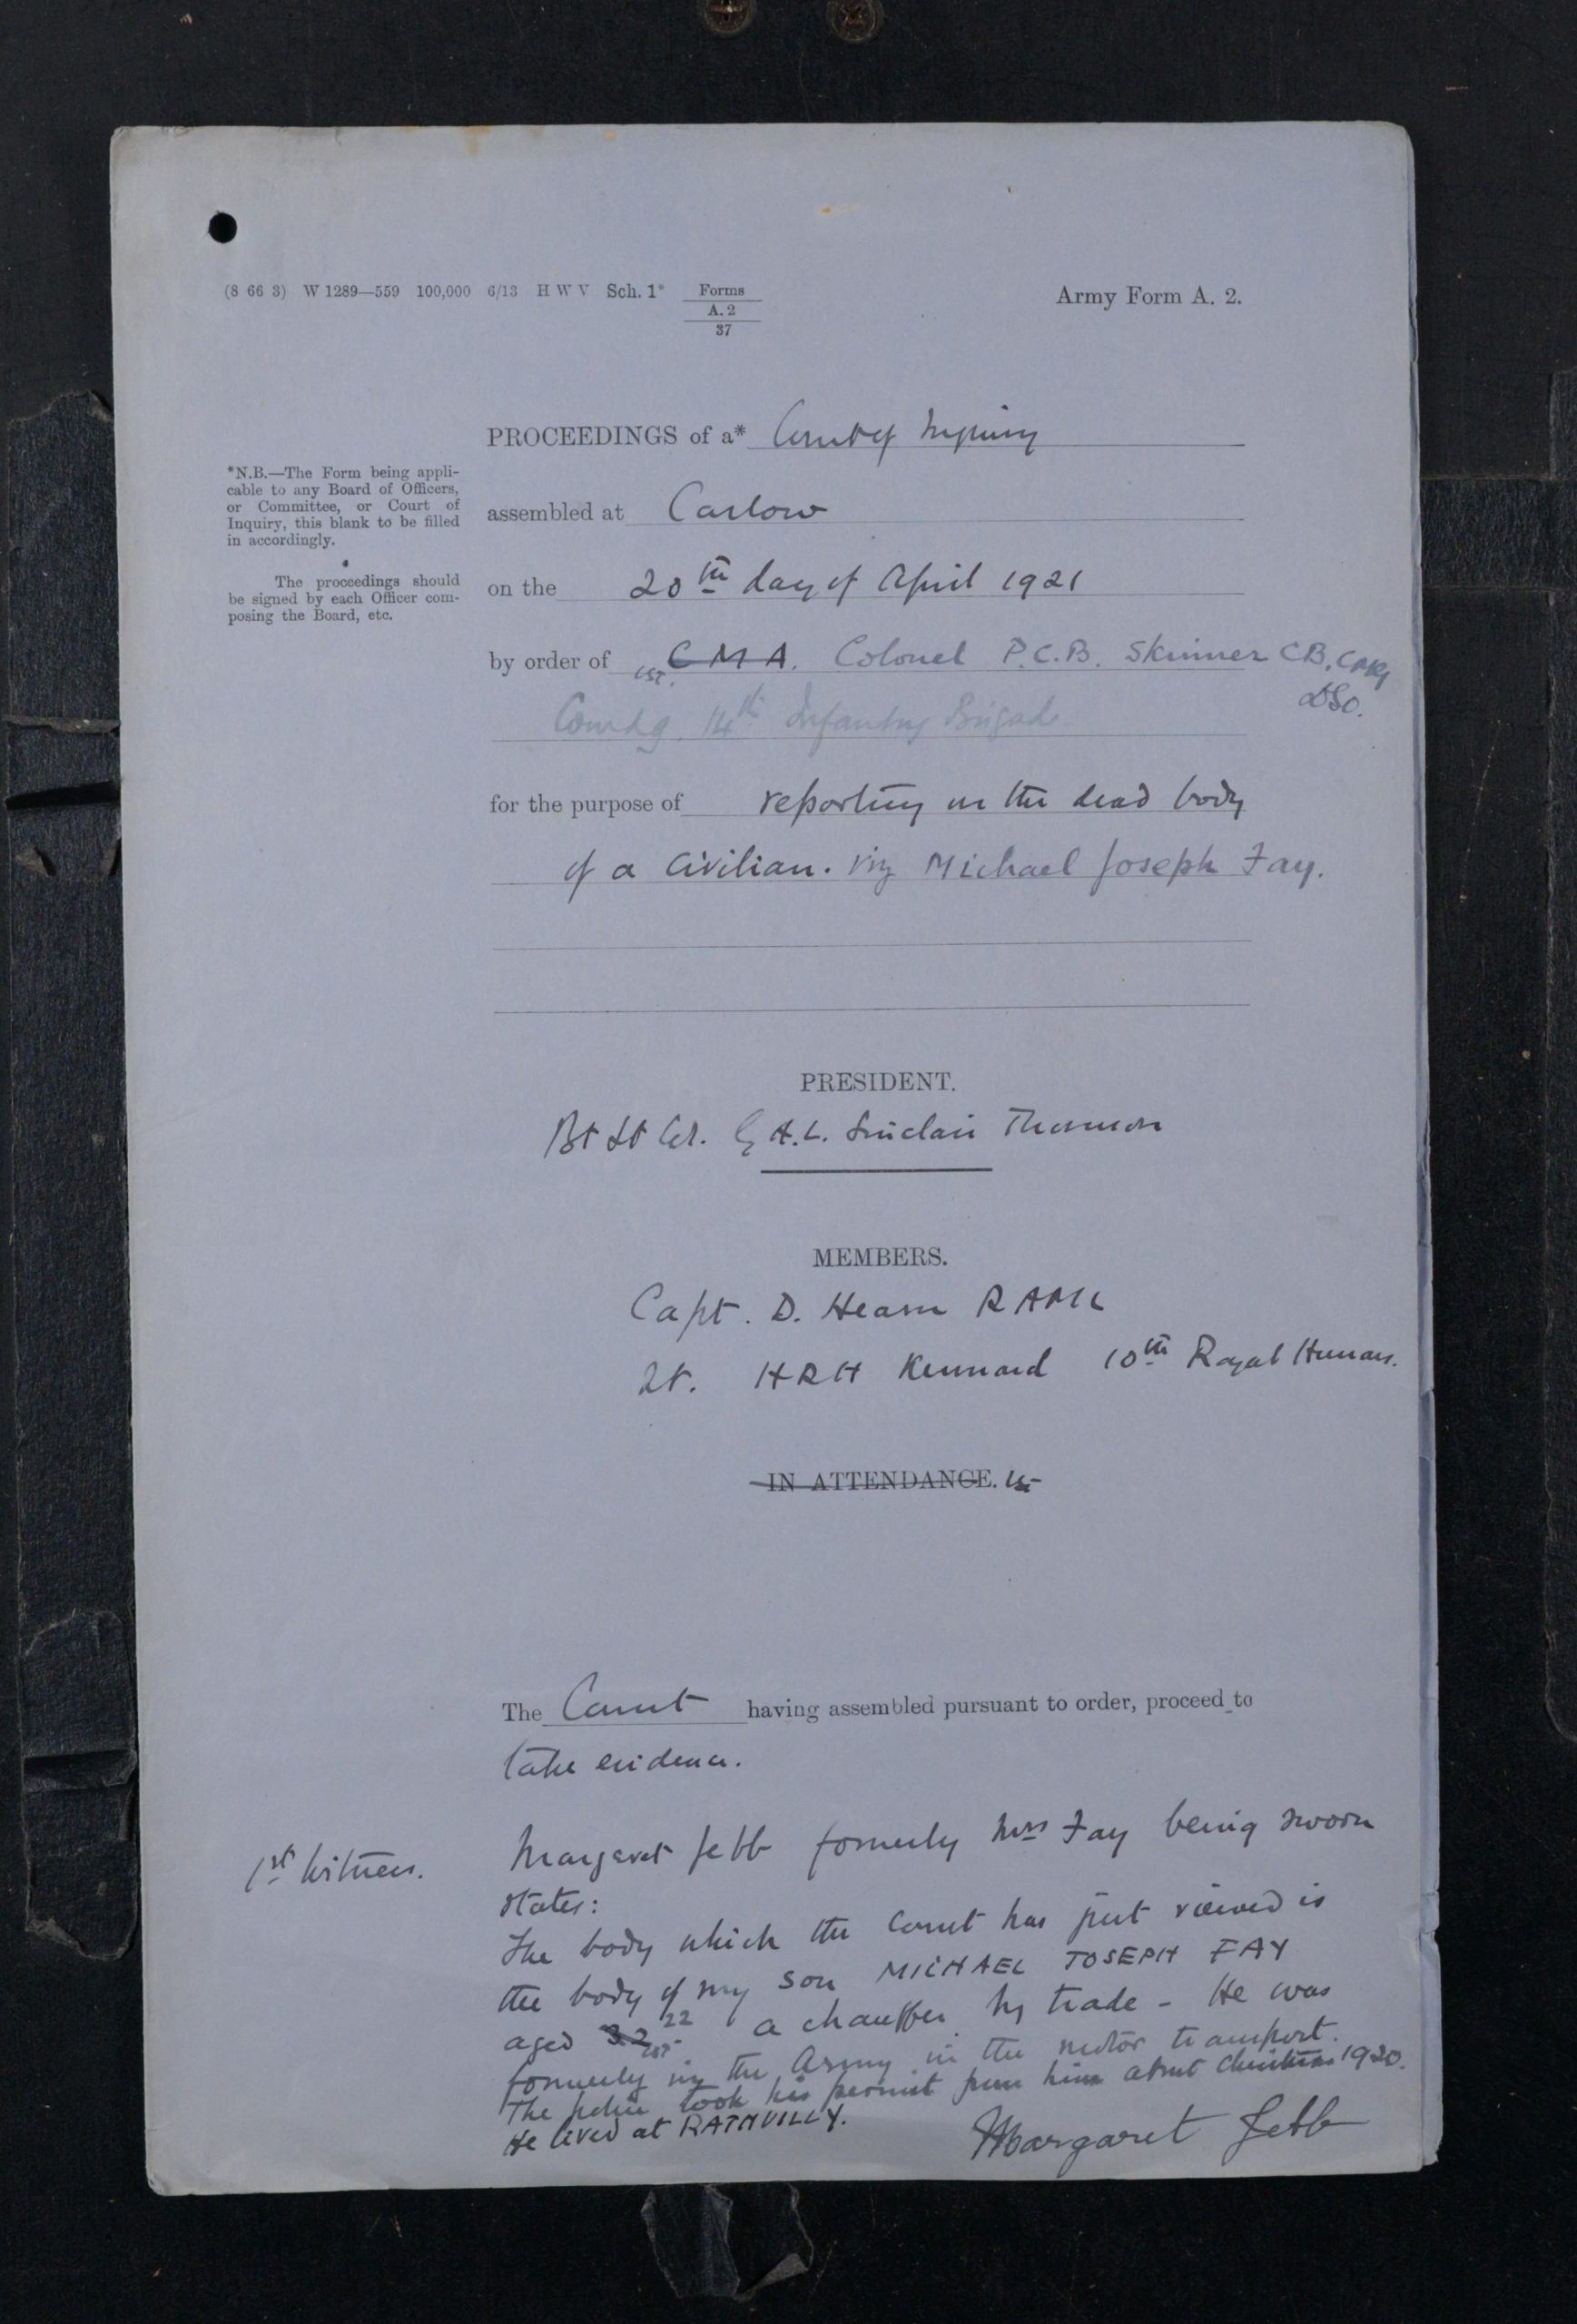 (8 66 3) W 1289—559 100,000 6/13 H W V Sch. 1* Forms
A. 2
37
Army Form A. 2.
PROCEEDINGS of a* Court of Inquiry
*N.B.—The Form being appli-
cable to any Board of Officers,
or Committee, or Court of
Inquiry, this blank to be filled
in accordingly.
The proceedings should
be signed by each Officer com-
posing the Board, etc.
assembled at Carlow
on the 20th day of April 1921
by order of C M A. Colonel P.C.B. Skinner CB, CMG
DSO.
Comdg. 14th Infantry Brigade.
for the purpose of reporting on the dead body
of a Civilian. viz Michael Joseph Fay.
PRESIDENT.
Bt Lt Col. A.L. Sinclair Thomson
MEMBERS.
Capt. D. Hearn RAMC
Lt. HRH Kennard 10th Royal Hussars.
IN ATTENDANCE.
The Court having assembled pursuant to order, proceed to
take evidence.
1st Witness.
Margaret Jebb formerly Mrs Fay being sworn
states:
The body which the Court has just viewed is
the body of my son MICHAEL JOSEPH FAY
aged 32 22 a chauffer by trade - He was
formerly in the Army in the motor transport.
The police took his permit from him about Christmas 1920.
He lived at RATHVILLY.
Margaret Jebb